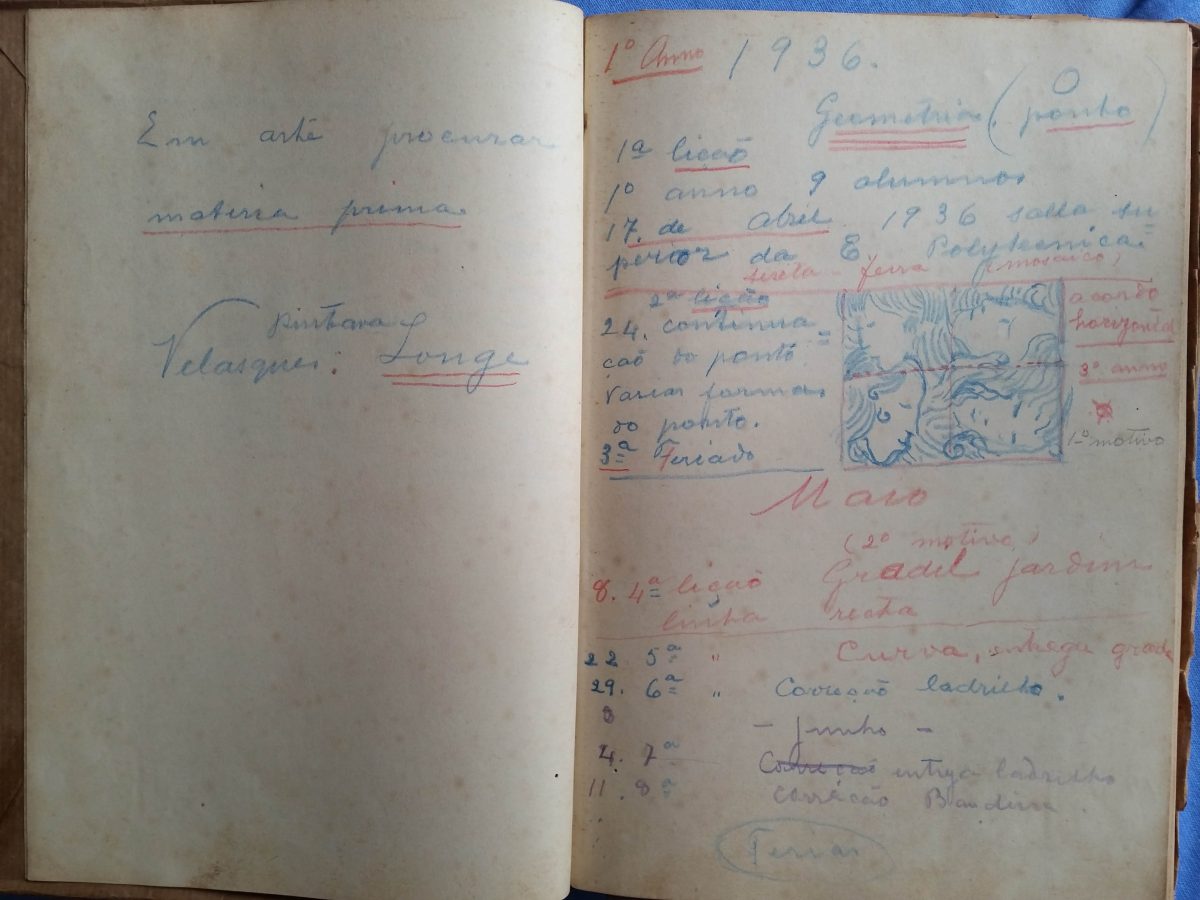 Em arte procurar
materia prima.
pintava
Velasques: Longe
1º Anno 1936.
Geometria (O ponto)
1ª lição
1º anno 9 alumnos
17. de Abril 1936 salla su=
perior da E. Polytecnica.
sexta-feira (mosaico)
2ª lição
24. continua=
ção do ponto
varias formas
do ponto.
3ª Feriado
acordo
horizontal
3º anno
1º motivo
Maio
(2º motivo)
8. 4ª lição Gradil jardim
linha recta
22 5ª " Curva, entrega grade
29. 6ª " Correção ladrilho.
- Junho -
4. 7ª Correcão entrega ladrilho
11. 8ª correcão Bandeira.
Ferias